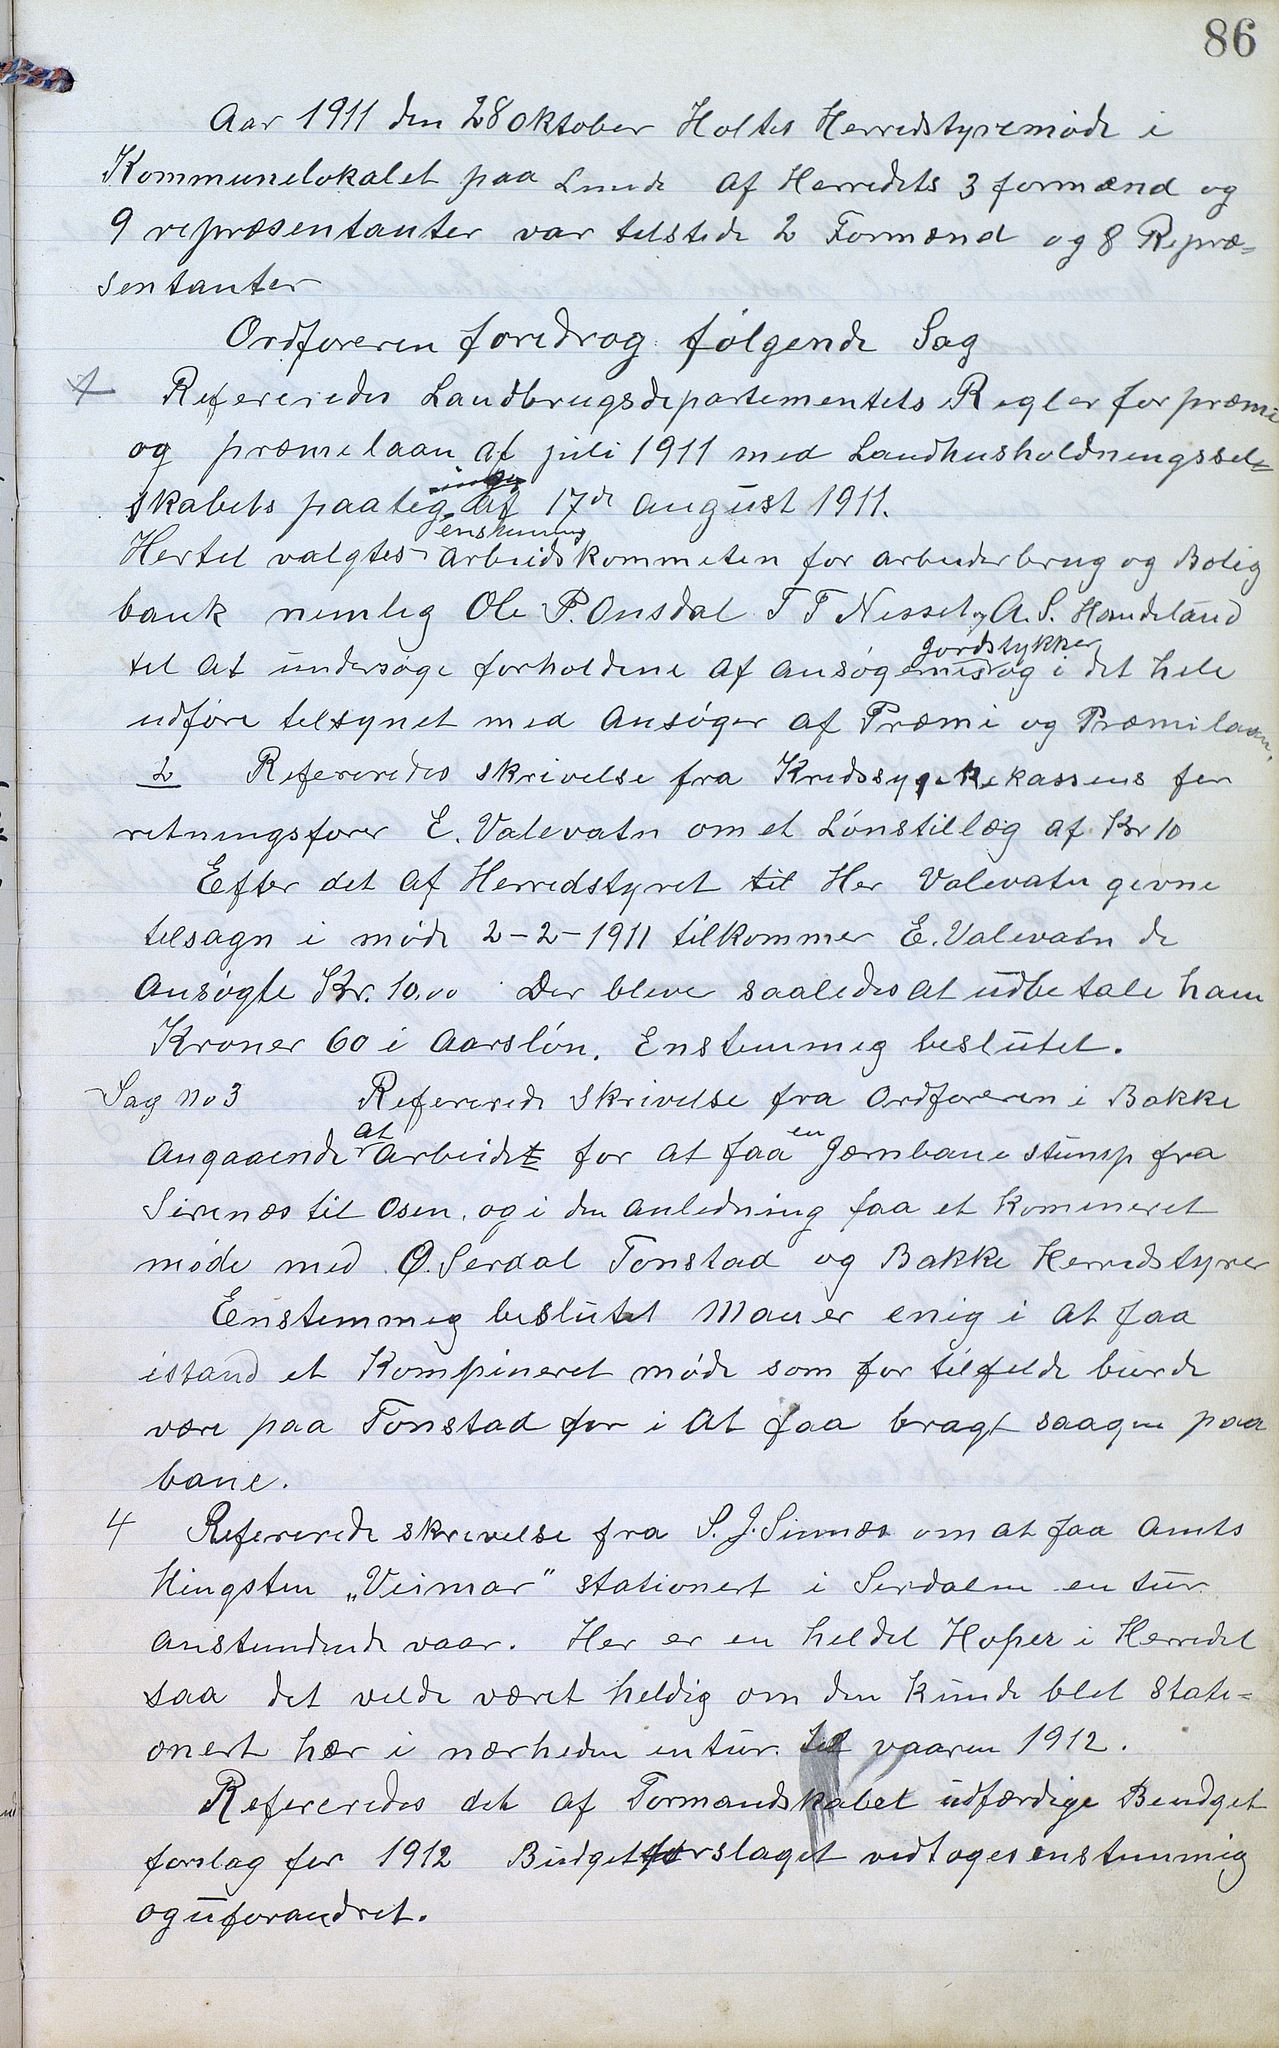 86
Aar 1911 den 28 Oktober Holtes Herredstyremøde i
Kommunelokalet paa Lunde af Herredets 3 formænd og
9 repræsentanter var telstede 2 Formænd og 8 Repræ-
sentanter
Ordføreren foredrog følgende Sag
1 Refereredes Landbrugsdepartementets Regler for præmi
og præmelaan af juli 1911 med Landhusholdningssel-
skabets paateg af 17de august 1911.
Hertel valgtes enstemmig arbeidskommeten for arbeiderbrug og Bolig
bank nemlig Ole P. Ousdal T T Nesset og A. S. Handeland
tel at undersøge forholdene af ansøgernes jordstykker og i det hele
udføre telsynet med Ansøger af Præmi og Præmilaan.
2 Refereredes skrivelse fra Kredssygekassens for
retningsfører E. Valevatn om et Lønstillæg af Kr 10
Efter det af Herredstyret til Her Valevatn givne
telsagn i møde 2-2-1911 tilkommer E. Valevatn de
Ansøgte Kr. 10.00 Der bleve saaledes at udbetale ham
Kroner 60 i Aarsløn. Enstemmeg beslutet.
Sag no 3 Refererede skrivelse fra Ordføreren i Bakke
Angaaende at arbeidet for at faa en Jærnbanestump fra
Sirenæs til Osen, og i den anledning faa et komineret
møde med Ø. Serdal Tonstad og Bakke Herredstyrer
Enstemmeg beslutet Man er enig i at faa
istand et Kompineret møde som for tilfelde burde
være paa Tonstad for i at faa bragt saagen paa
bane.
4 Refererede skrevelse fra S. J. Sinnes om at faa Amts
Hingsten „Veimar" stationert i Serdalen en tur
anstundende vaar. Her er en heldel Hoper i Herredet
saa det velde været heldig om den kunde blet State-
onert hær i nærheden en tur til vaaren 1912.
Refereredes det af Formandskabet udfærdige Beudget
forslag for 1912 Budgetforslaget vedtoges enstemmig
og uforandret.